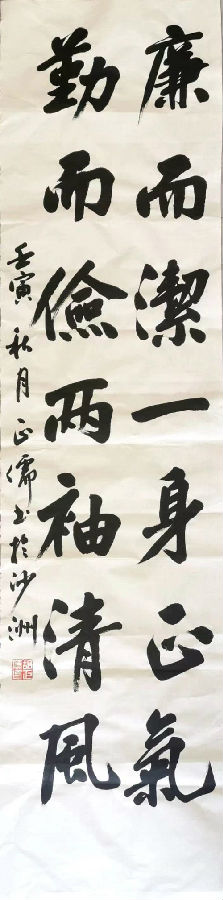 廉而潔一身正氣
勤而儉兩袖清風
壬寅秋月正儒书於沙洲